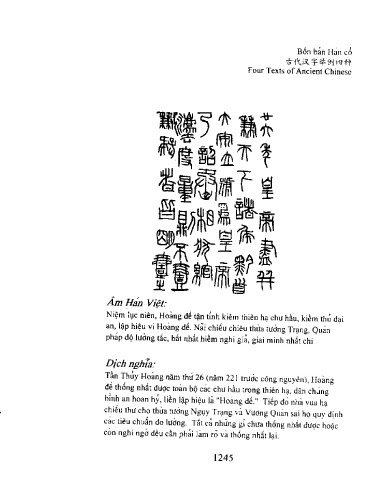 Bốn bản Hán cổ
古代汉字举例四种
Four Texts of Ancient Chinese
廿六年皇帝盡并
兼天下諸侯黔首
大安立號爲皇帝
乃詔丞相狀綰
灋度量則不壹
歉疑者皆明壹之
Âm Hán Việt:
Niệm lục niên, Hoàng đế tận tính kiêm thiên hạ chư hầu, kiềm thủ đại
an, lập hiệu vi Hoàng đế. Nãi chiếu chiêu thừa tướng Trạng, Quán
pháp độ lường tắc, bất nhất hiềm nghi giả, giai minh nhất chi
Dịch nghĩa:
Tần Thủy Hoàng năm thứ 26 (năm 221 trước công nguyên), Hoàng
đế thống nhất được toàn bộ các chư hầu trong thiên hạ, dân chúng
bình an hoan hỷ, liền lập hiệu là "Hoàng đế." Tiếp đó nhà vua hạ
chiếu thư cho thừa tướng Ngụy Trạng và Vương Quán sai họ quy định
các tiêu chuẩn đo lường. Tất cả những gì chưa thống nhất được hoặc
còn nghi ngờ đều cần phải làm rõ và thống nhất lại.
1245